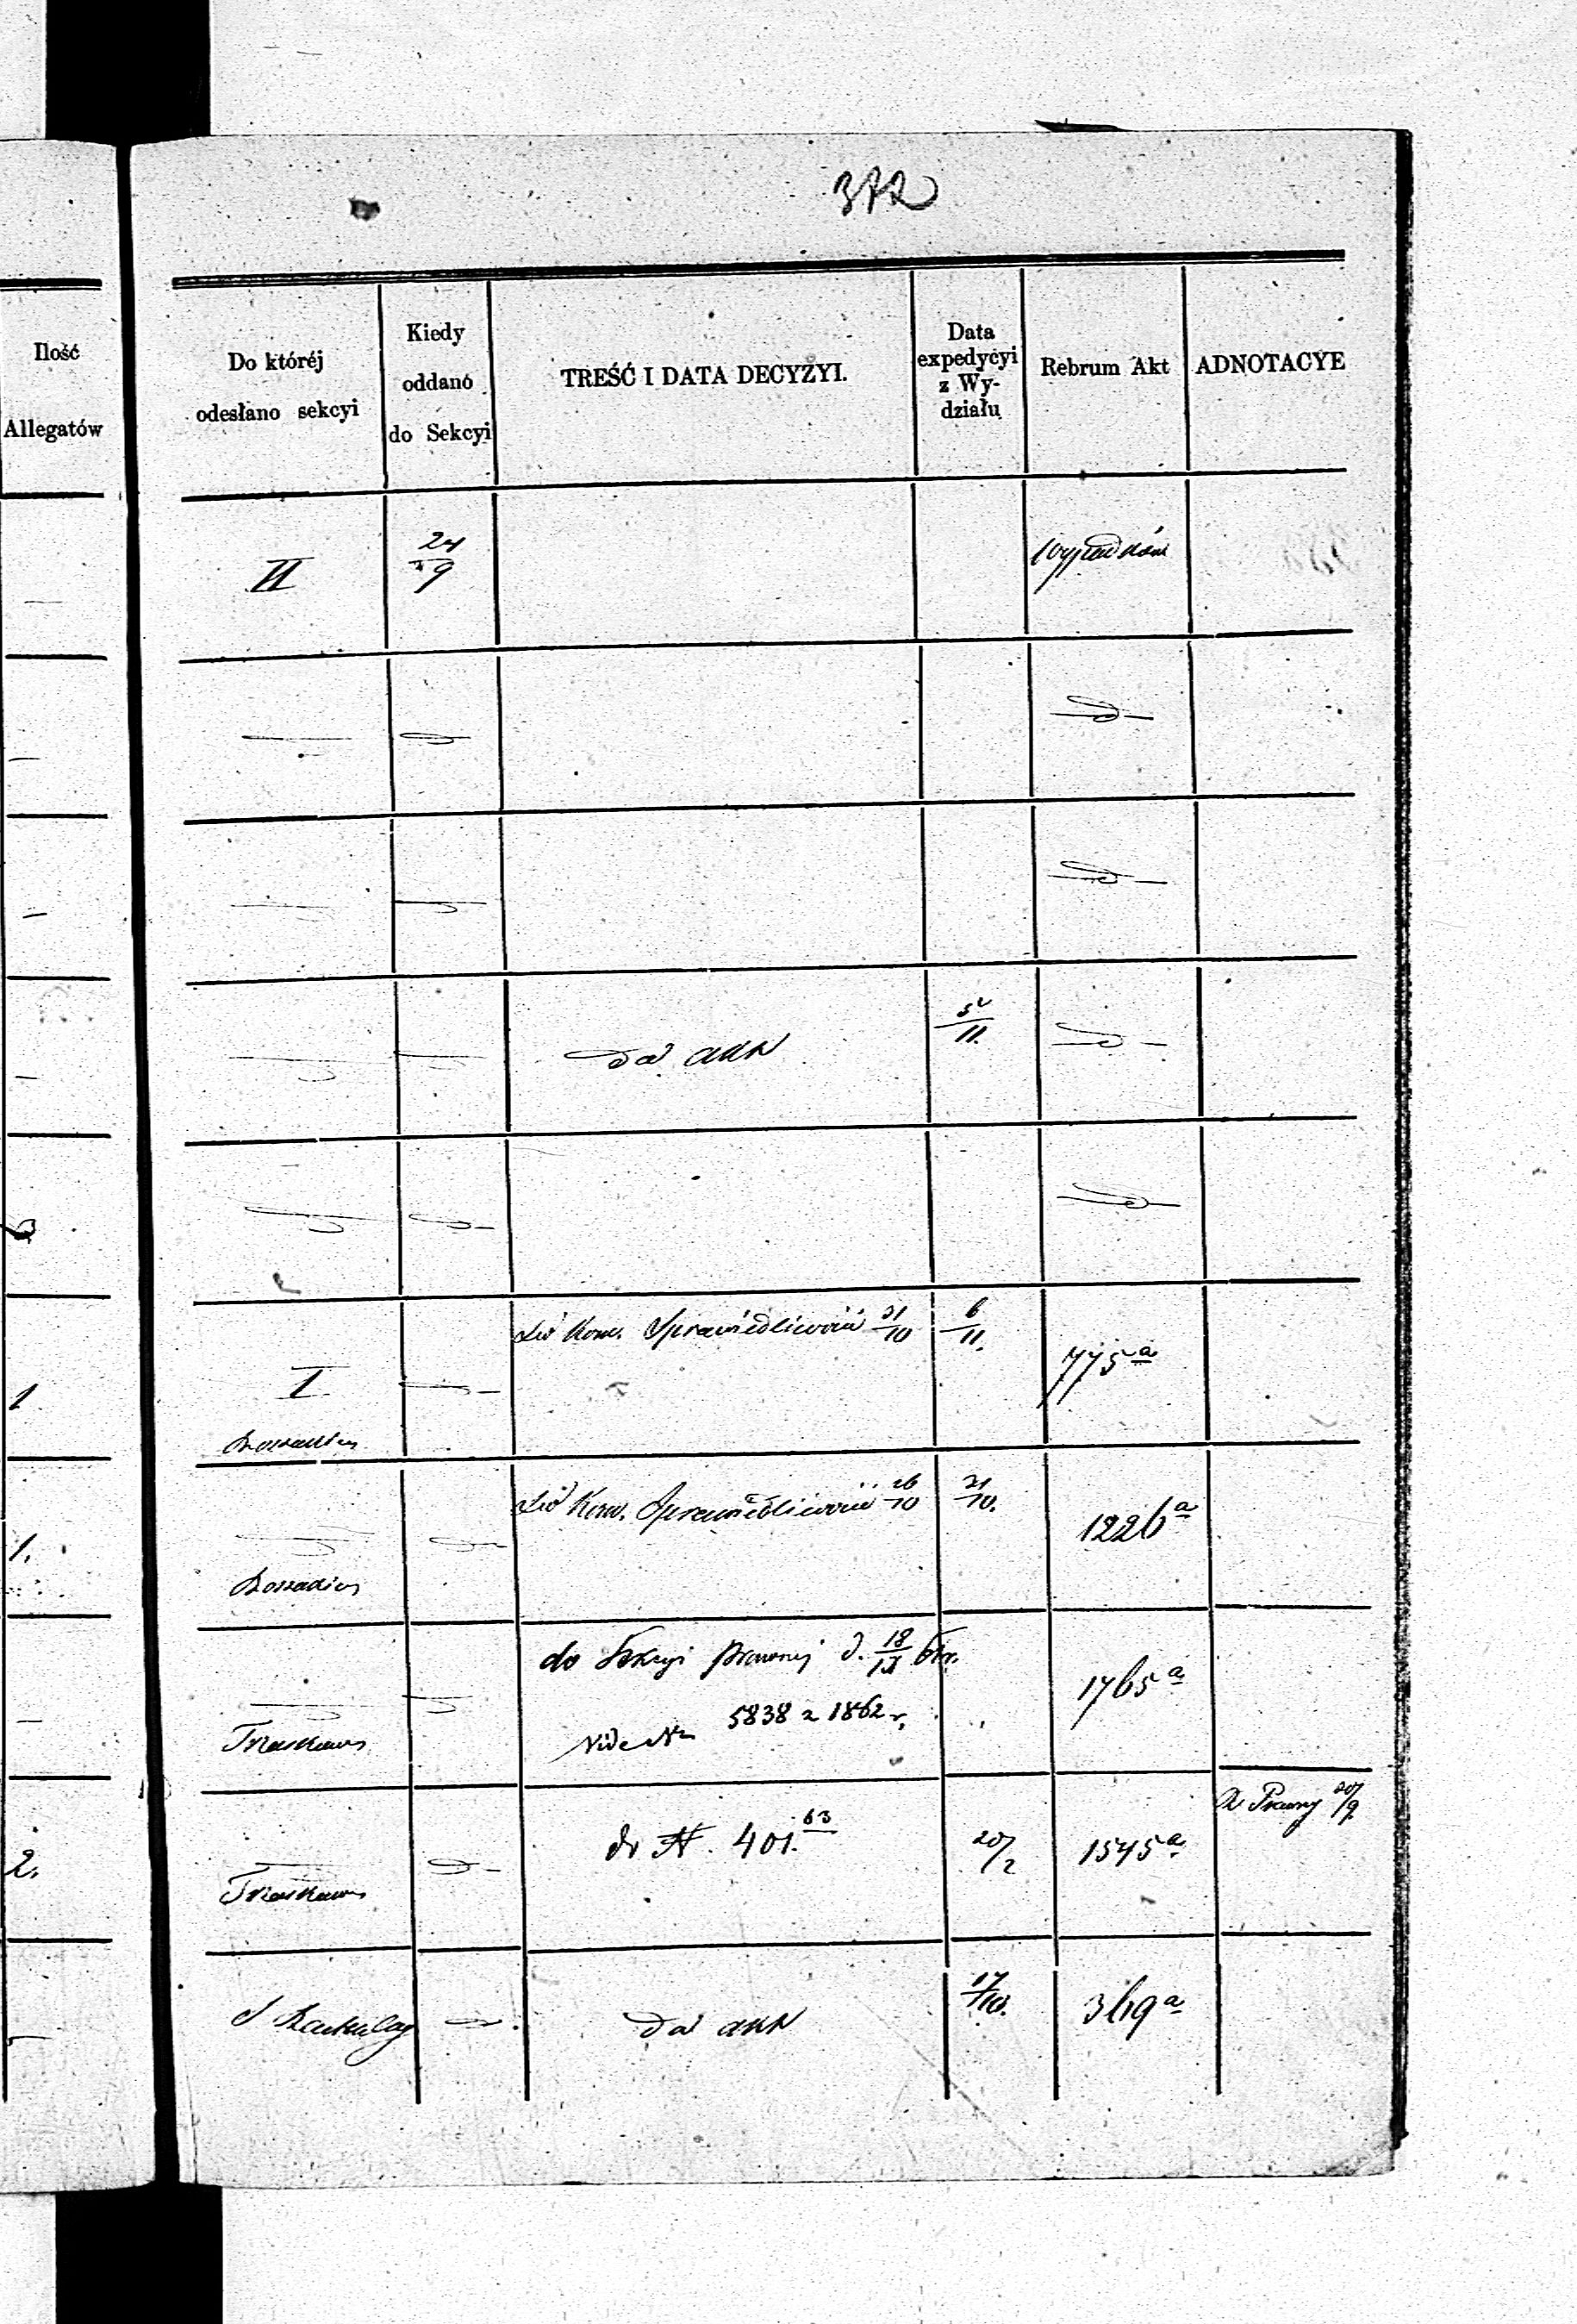 372
Ilość
Allegatów
Do któréj
odesłano sekcyi
Kiedy
oddano
do Sekcyi
TREŚĆ I DATA DECYZYI.
Data
expedycyi
z Wy-
działu
Rebrum Akt
ADNOTACYE
II
24/9
Wypadków
do akt
5/11.
1
I
do Kom. Sprawiedliwości 31/10
6/11.
775a
1.
do Kom. Sprawiedliwości 26/10
31/10.
1226a
do Sekcyi prawnej d. 18/IX
Vide No 5838 z 1862 r.
1765a
2.
do N. 401.63
20/2
1545a
20/9
do akt
17/10.
369a